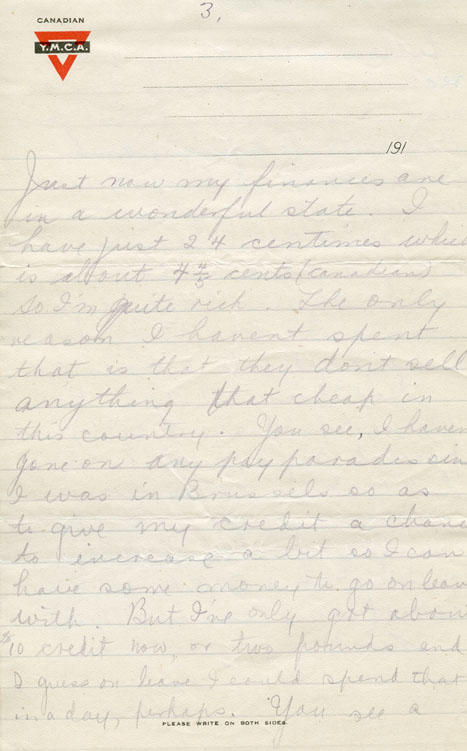 3.
CANADIAN
Y.M.C.A.
191
Just now my finances are
in a wonderful state. I
have just 24 centimes whic
is about 4 4/5 cents (Canadian)
So I'm quite rich. The only
reason I havent spent
that is that they dont sell
anything that cheap in
this country. You see, I haven
gone on any pay parades sin
I was in Brussels so as
to give my credit a chanc
to increase a bit so I can
have some money to go on leav
with. But I've only got abou
$10 credit now, or two pounds and
I guess on leave I could spend that
in a day, perhaps. You see a
PLEASE WRITE ON BOTH SIDES.